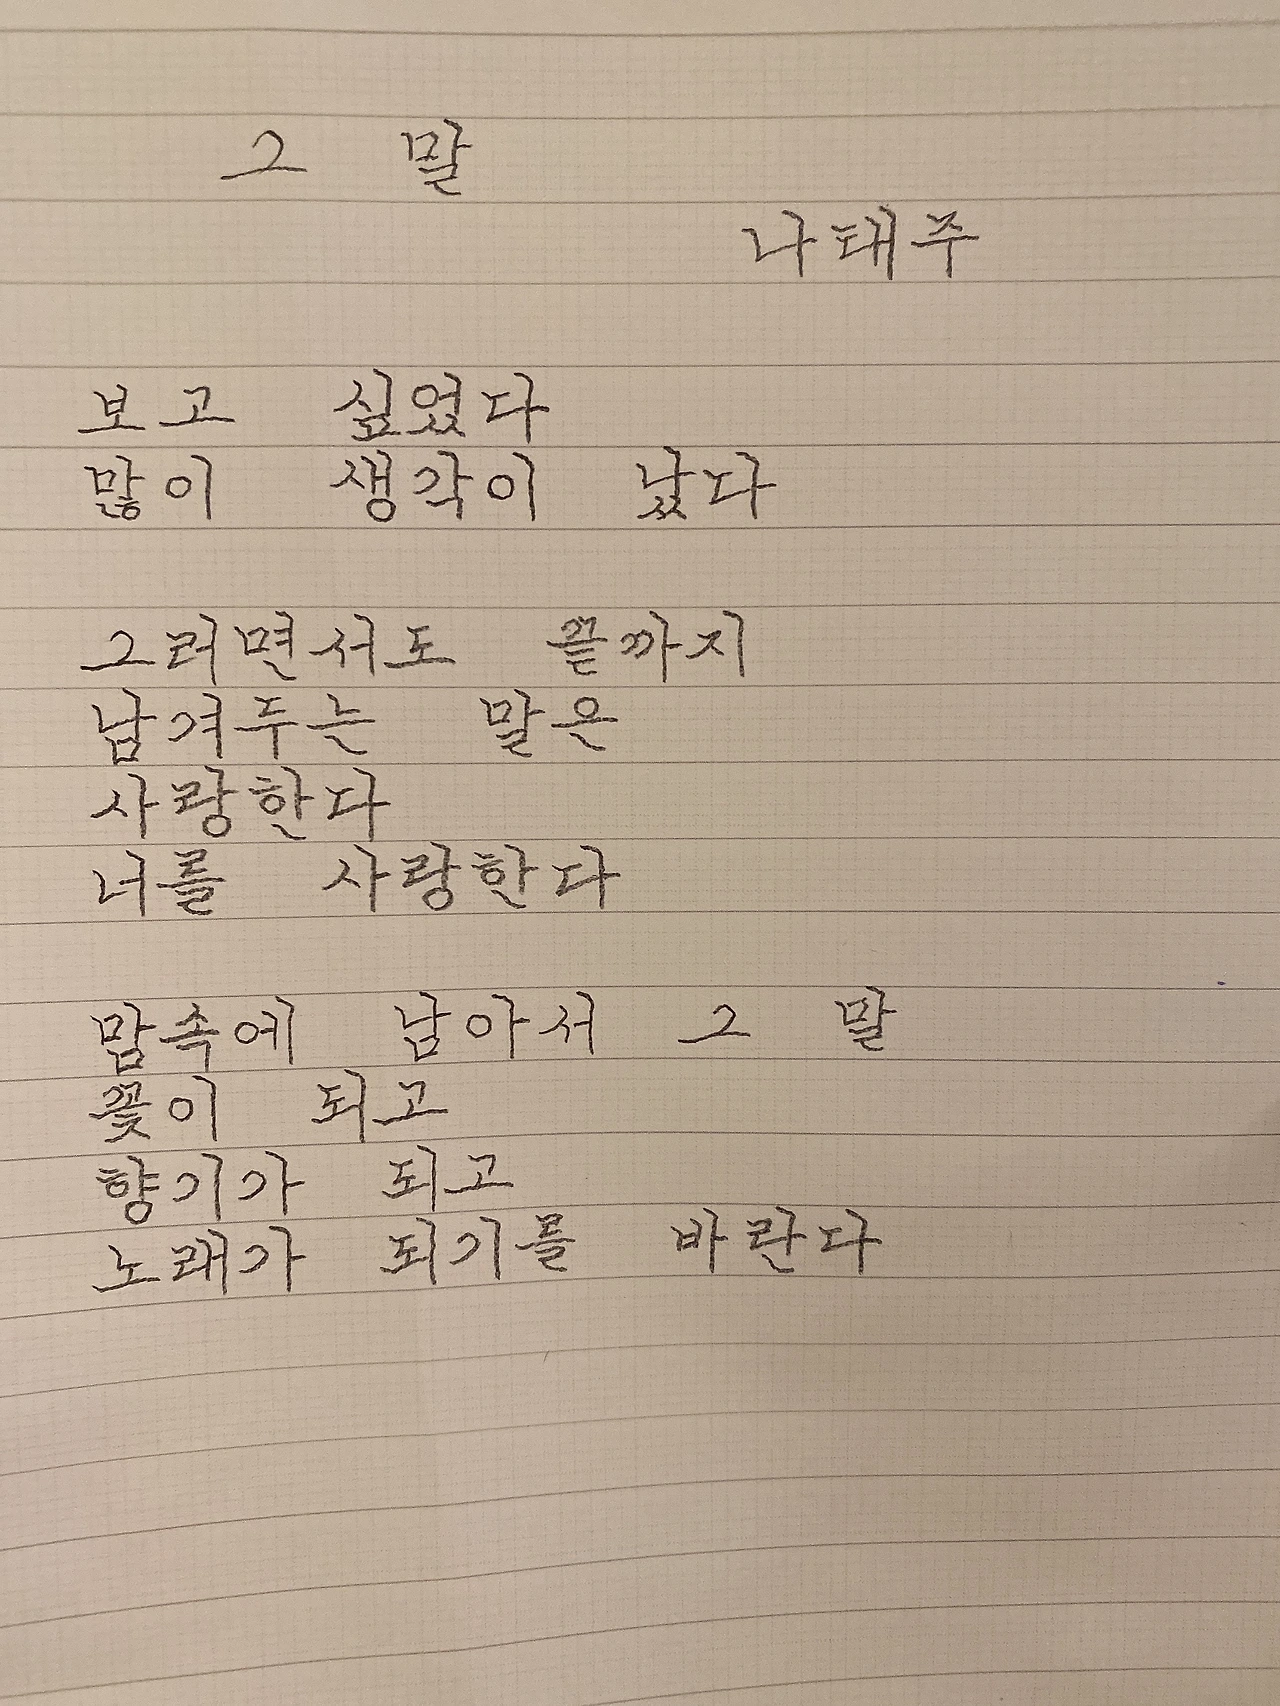 그 말
나태주
보고 싶었다
많이 생각이 났다
그러면서도 끝까지
남겨두는 말은
사랑한다
너를 사랑한다
맘속에 남아서 그 말
꽃이 되고
향기가 되고
노래가 되기를 바란다